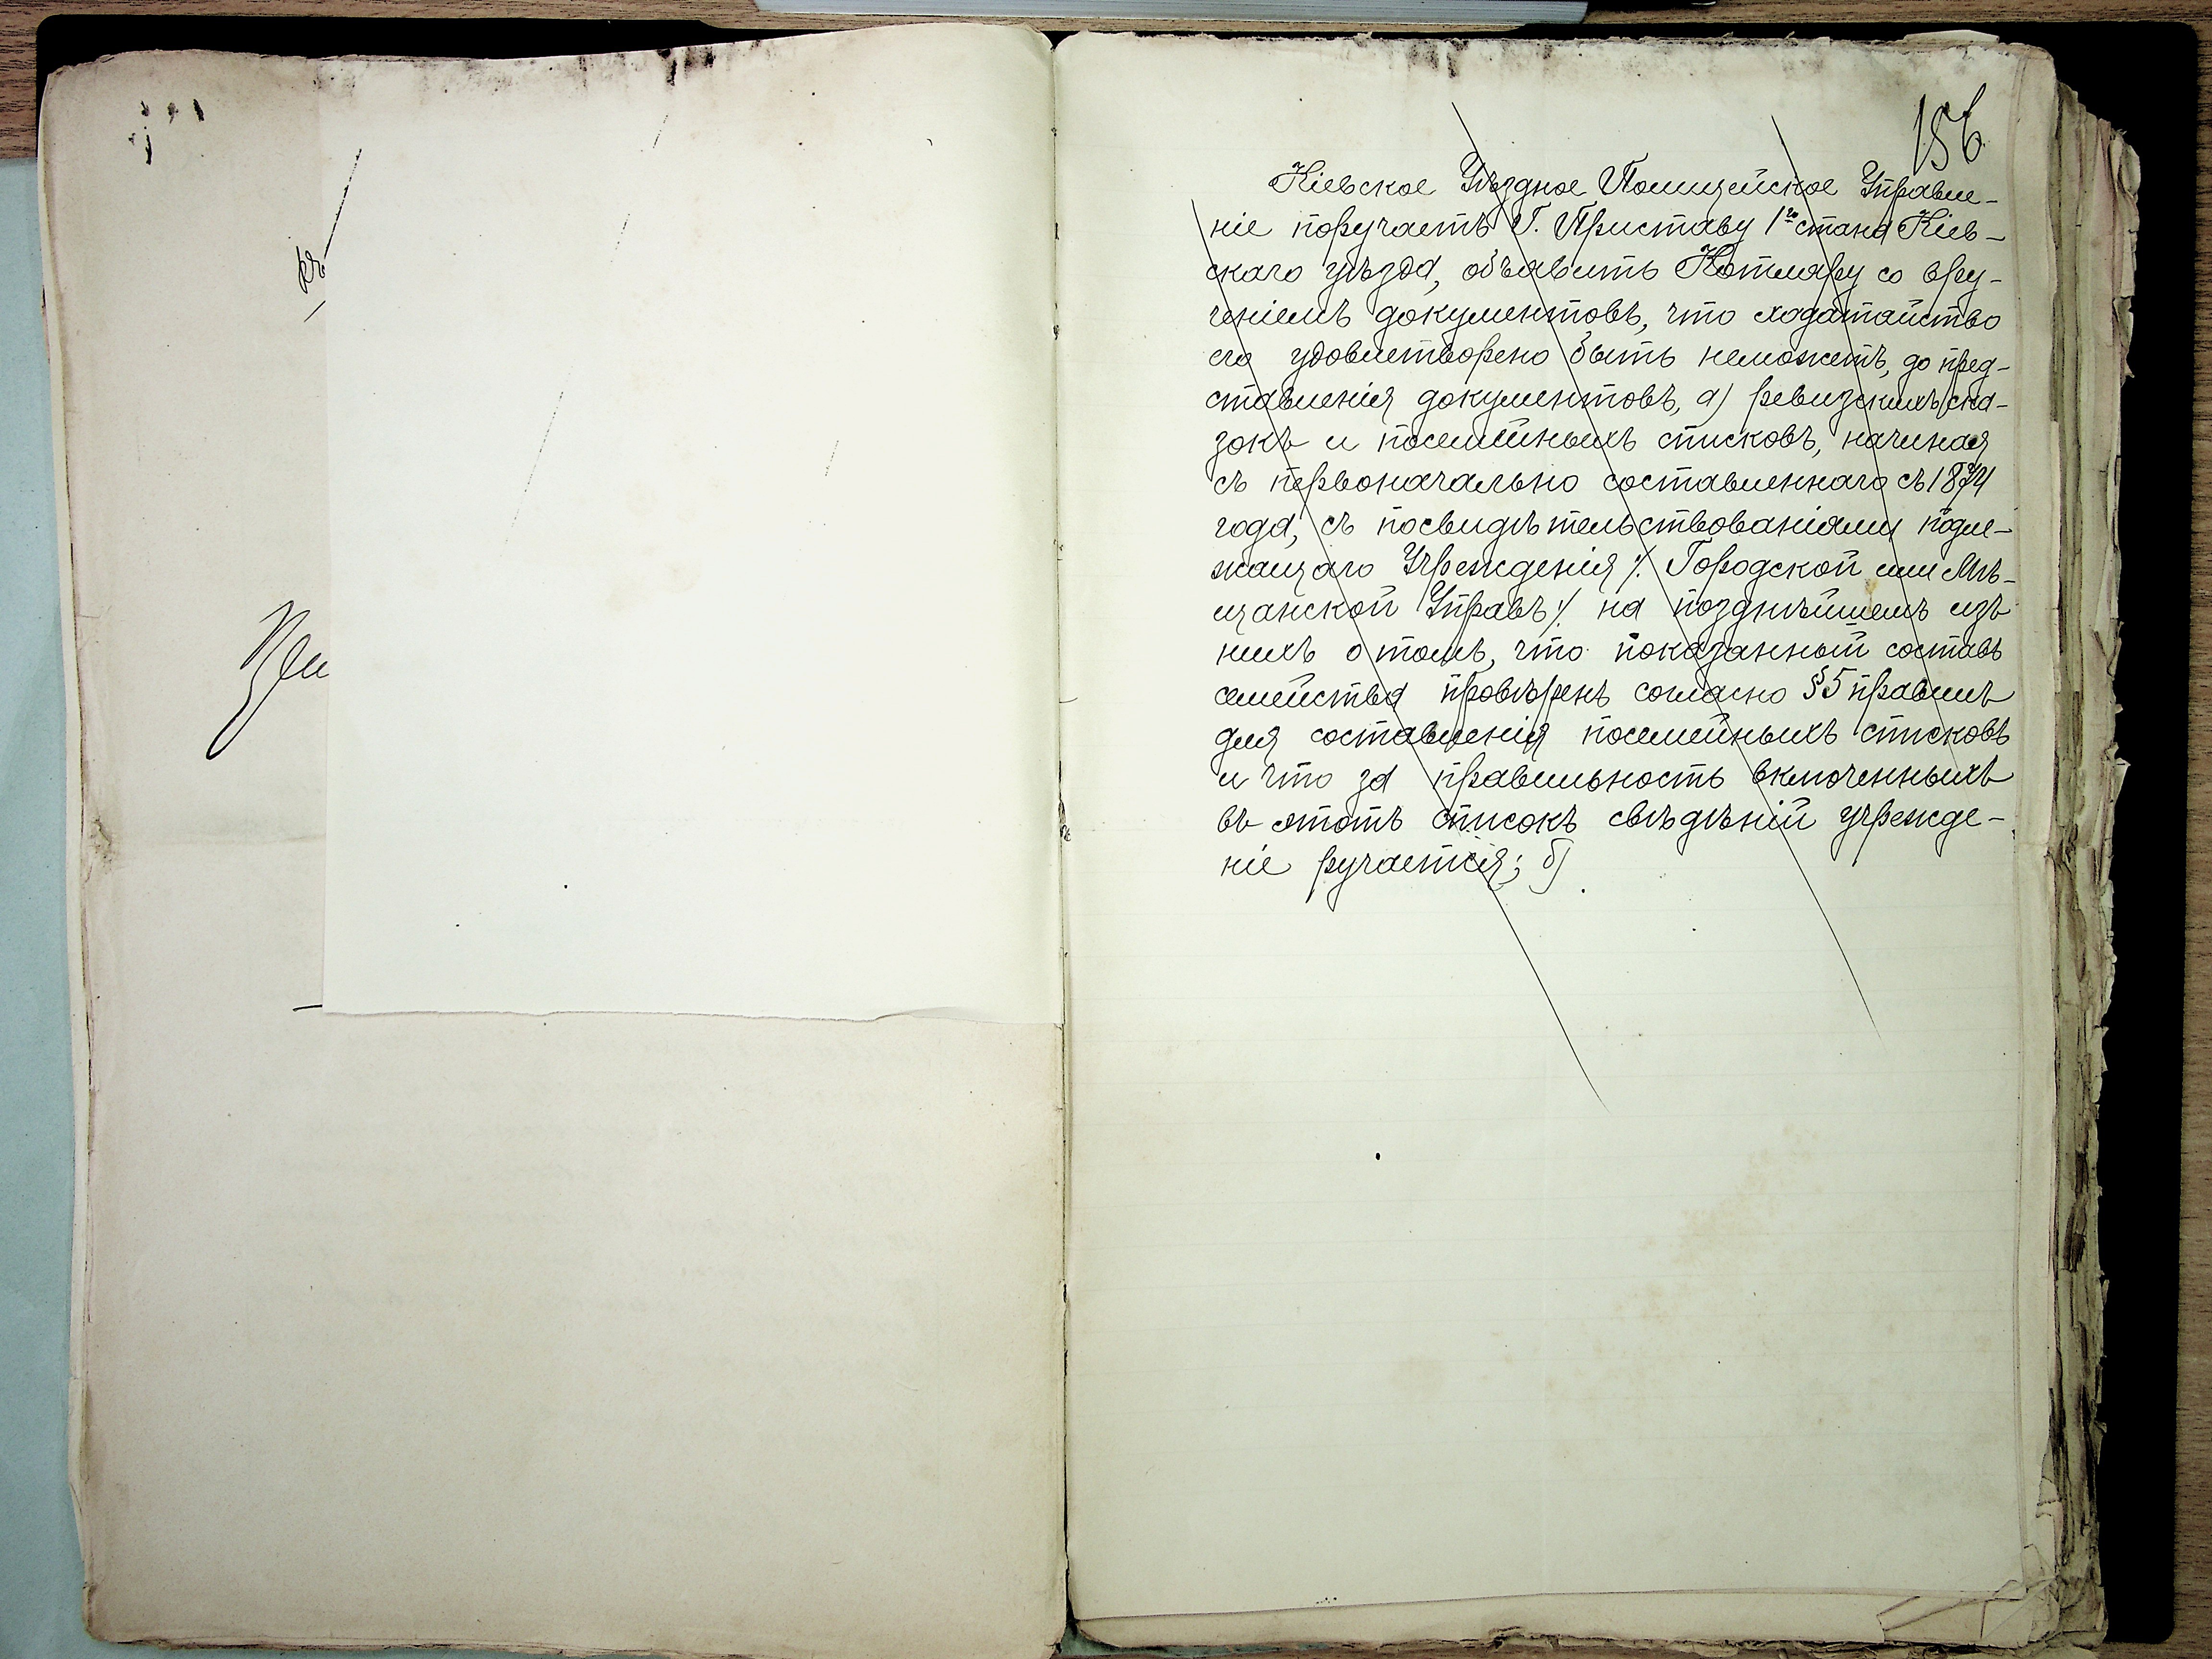 156
Кіевское Уѣздное Полицейское Управле-
ніе поручаетъ Г. Приставу 1го стана Кіев-
скаго уѣзда, объявить Котляру со вру-
ченіемъ документовъ, что ходатайство
его удовлетворено быть неможетъ, до пред-
ставленія документовъ, а) ревизскихъ ска-
зокъ и посемейныхъ списковъ, начиная
съ первоначально составленнаго съ 1874
года, съ посвидѣтельствованіями подле-
жащаго Учрежденія /. Городской или Мѣ-
щанской Управъ /. на позднѣйшемъ изъ
нихъ о томъ, что показанный составъ
семейства провѣренъ согласно §5 правилъ
для составленія посемейныхъ списковъ
и что за правильность включенныхъ
въ этотъ списокъ свѣдѣній учрежде-
ніе ручается; б)